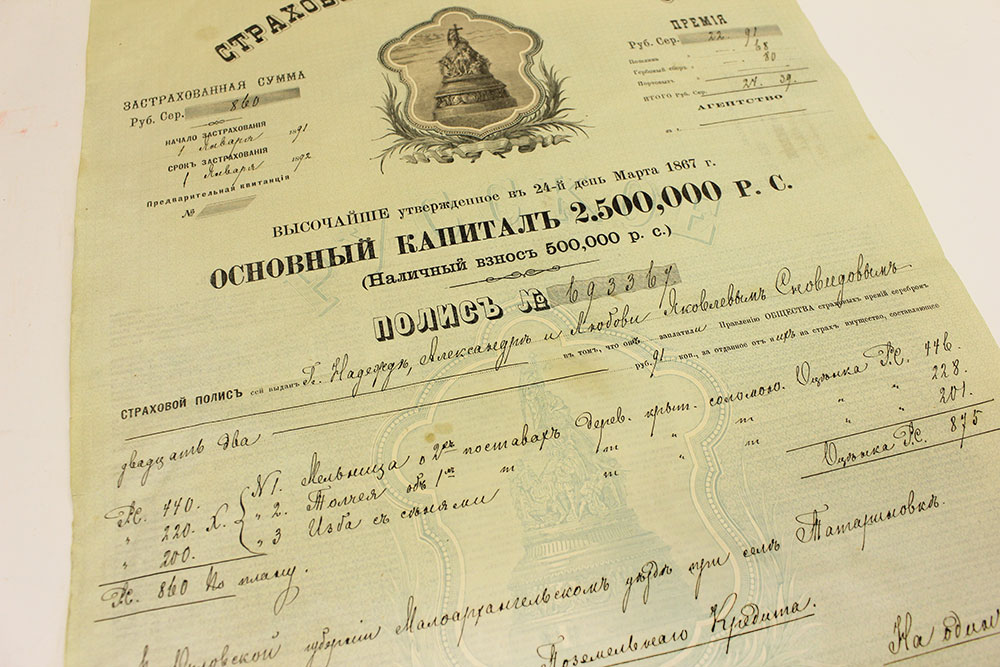 ЗАСТРАХОВАННАЯ СУММА
Руб. Сер. 860
НАЧАЛО ЗАСТРАХОВАНІЯ
1 Января 1891
СРОКЪ ЗАСТРАХОВАНІЯ
1 Января 1892
Предварительная квитанція
№
ПРЕМІЯ
Руб. Сер. 22. 91
" 68
" 80
ИТОГО Руб. Сер. 24. 39.
АГЕНТСТВО
ВЫСОЧАЙШЕ утвержденное въ 24-й день Марта 1867 г.
ОСНОВНЫЙ КАПИТАЛЪ 2.500,000 Р. С.
(Наличный взносъ 500,000 р. с.)
ПОЛИСЪ № 693367
СТРАХОВОЙ ПОЛИСЪ сей выданъ Г. Надеждѣ, Александрѣ и Любови Яковлевымъ Сновидовымъ
въ томъ, что онѣ заплатили Правленію ОБЩЕСТВА страховыхъ премій серебромъ
двадцать два руб. 91 коп., за отданное отъ нихъ на страх имущество, составляющее
РС. 440. № 1. Мельница о 2хъ поставахъ дерев. крыт. соломою. Оцѣнка РС. 446.
" 220. Х. " 2. Толчея объ 1мъ " " 228.
" 200. " 3 Изба съ сѣнями " " 201.
РС. 860 По плану. Оцѣнка РС. 875
Орловской губерніи Малоархангельскомъ уѣздѣ при селѣ Татариновкѣ.
Поземельнаго Кредита.
На один